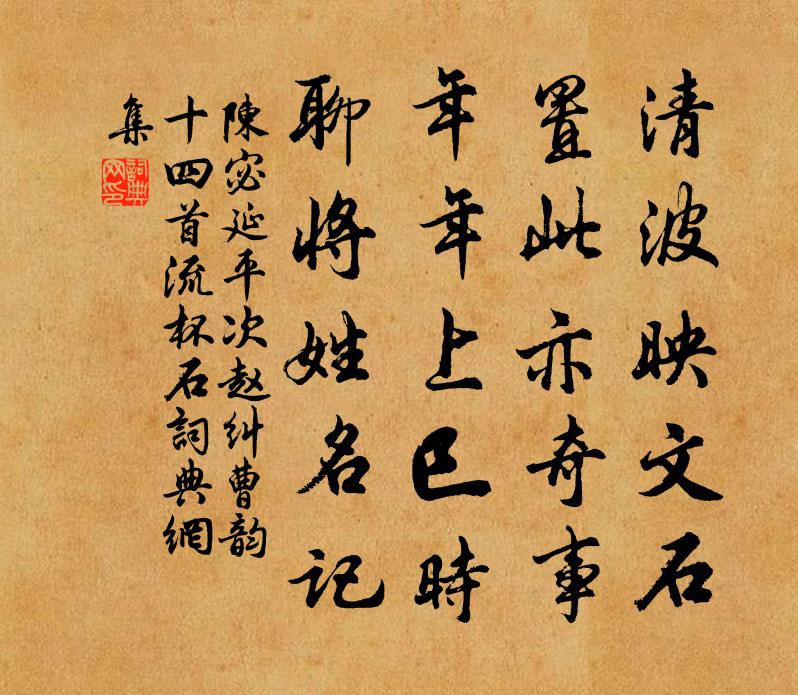 清波映文石
置此亦奇事
年年上巳時
聊将姓名记
陳宓延平次趙糾曹韵
十四首流杯石詞典網
集
詞典網印